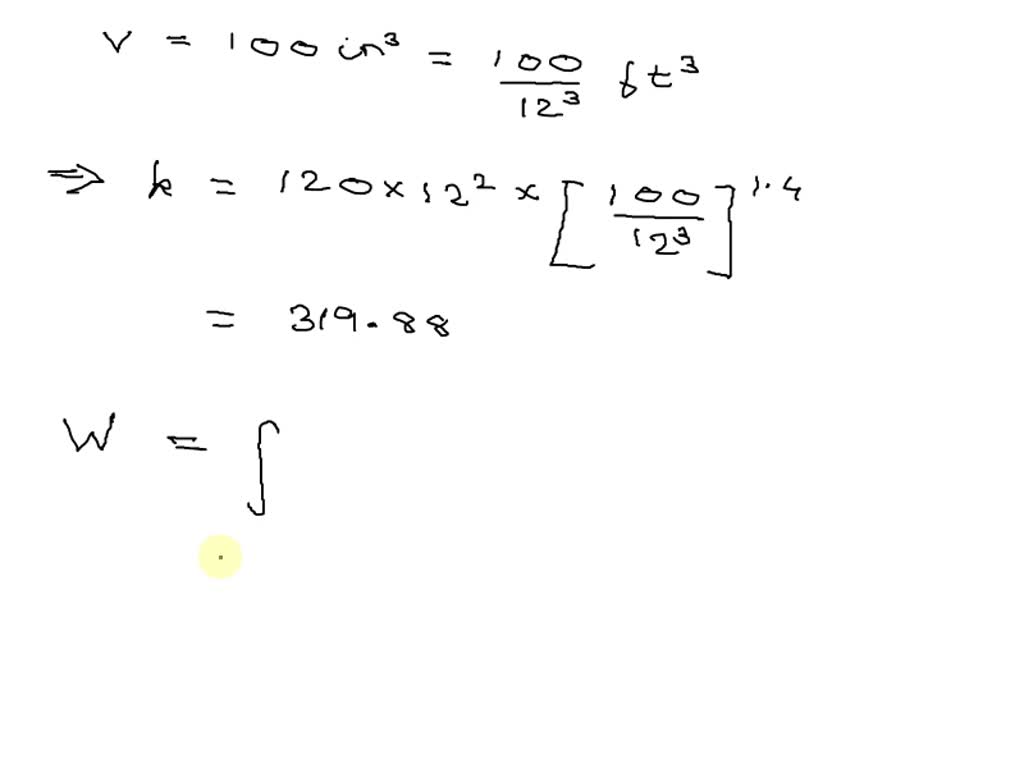 V = 100 in³ = 100/12³ ft³
⇒ k = 120 × 12² × [100/12³]^1.4
= 319.88
W = ∫